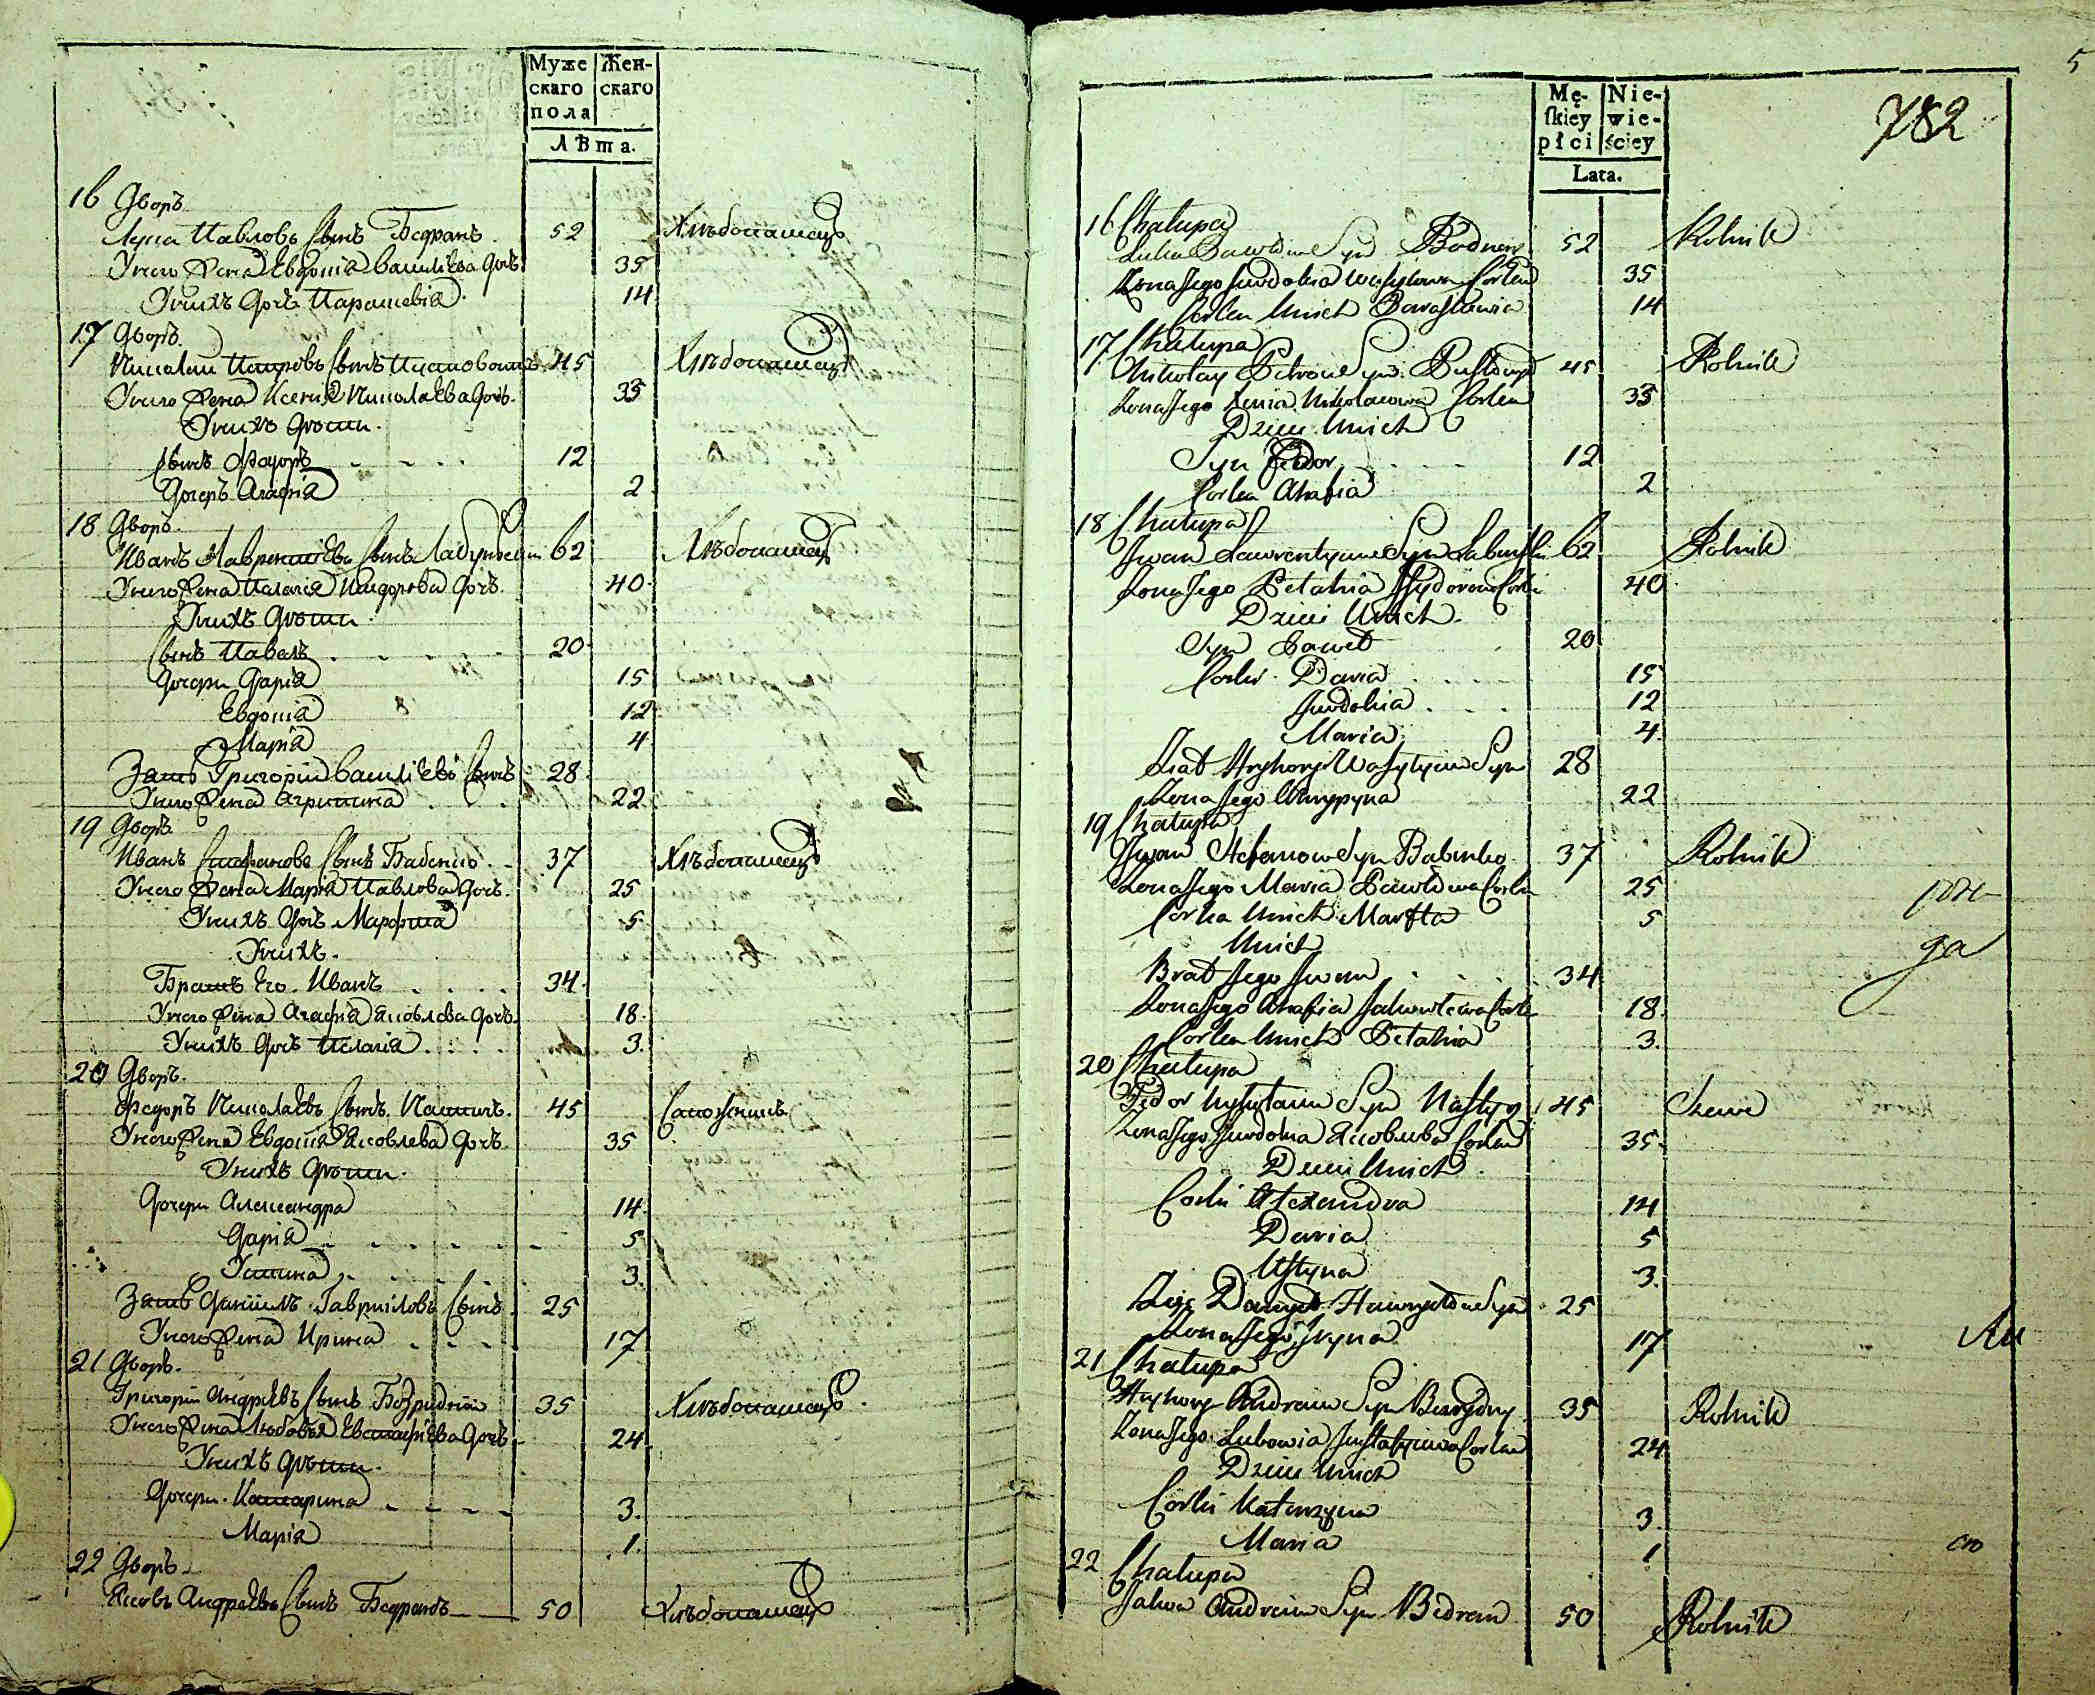 Муже Жен-
скаго скаго
пола
Лѣта.
16 Дворъ
Лука Павловъ Сынъ Бедранъ 52 Хлѣбопашецъ
У него Жена Евдокія Василіева Дочь 35
У нихъ Дочь Парашевія 14
17 Дворъ
Николай Петровъ Сынъ 45 Хлѣбопашецъ
У него Жена Ксенія Николаева Дочь 33
У нихъ Дѣти
Сынъ Федоръ 12
Дочерь Агафія 2
18 Дворъ
Иванъ Лаврентіевъ Сынъ 62 Хлѣбопашецъ
У него Жена Пелагія Дочь 40
У нихъ Дѣти
Сынъ Павелъ 20
Дочери Дарія 15
Евдокія 12
Марія 4
Зять Григорій Василіевъ Сынъ 28
У него Жена Агрипина 22
19 Дворъ
Иванъ Стефановъ Сынъ Бабенко 37 Хлѣбопашецъ
У него Жена Марія Павлова Дочь 25
У нихъ Дочь Марфта 5
У нихъ
Братъ Его Иванъ 34
У него Жена Агафія Яковлева Дочь 18
У нихъ Дочь Пелагія 3
20 Дворъ
Федоръ Николаевъ Сынъ 45 Сапожникъ
У него Жена Евдокія Яковлева Дочь 35
У нихъ Дѣти
Дочери Александра 14
Дарія 5
Устина 3
Зять Даніилъ Гавриловъ Сынъ 25
У него Жена Ирина 17
21 Дворъ
Григорій Андреевъ Сынъ 35 Хлѣбопашецъ
У него Жена Любовья Евстафіева Дочь 24
У нихъ Дѣти
Дочери Катарина 3
Марія 1
22 Дворъ
Яковъ Андреевъ Сынъ Бедранъ 50 Хлѣбопашецъ
5
782
Mę- Nie-
skiey wie-
płci ściey
Lata.
16 Chałupa
Łuka Pawłow Syn 52 Rolnik
Zona Jego Jewdokia Wasylowa Corka 35
Corka Unich 14
17 Chałupa
Nikołay Petrow Syn 45 Rolnik
Zona Jego Xenia Nikołaiowa Corka 33
Dzieci Unich
Syn Fedor 12
Corka Ahafia 2
18 Chałupa
Jwan Ławrentyiew Syn 62 Rolnik
Zona Jego Pełahia Corka 40
Dzieci Unich
Syn Paweł 20
Corki Daria 15
Jewdokia 12
Maria 4
Ziat Hryhory Wasylyiew Syn 28
Zona Jego Ahrypyna 22
19 Chałupa
Jwan Stefanow Syn Babenko 37 Rolnik
Zona Jego Maria Pawłowa Corka 25
Corka Unich Marfta 5
Unich
Brat Jego Jwan 34
Zona Jego Ahafia Jakowlewa Corka 18
Corka Unich Pełahia 3
20 Chałupa
Fedor Syn 45 Szewc
Zona Jego Jewdokia Яковлева Corka 35
Dzieci Unich
Corki Alexandra 14
Daria 5
Ustyna 3
Danyło Hawryłow Syn 25
Zona Jego Jryna 17
21 Chałupa
Hryhory Andreiew Syn 35 Rolnik
Zona Jego Lubowia Corka 24
Dzieci Unich
Corki Katerzyna 3
Maria 1
22 Chałupa
Jakow Andreiew Syn Bedran 50 Rolnik